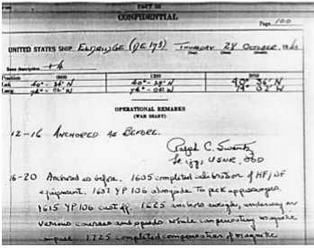 PART III
CONFIDENTIAL
Page 100
UNITED STATES SHIP ELDRIDGE (DE 173) THURSDAY 28 OCTOBER,
Zone Description +4
Position 0800 1200 2000
Lat. 40°-36'N 40°-36'N 40° 36' N
Long. 74°-02'W 74°-02'W 74° 02' W
OPERATIONAL REMARKS
(WAR DIARY)
12-16 ANCHORED AS BEFORE.
Ralph C.
USNR, OOD
16-20 Anchored as before. 1605 completed calibration of HF/DF
equipment. 1607 YP 106 alongside to pick up passengers.
1615 YP 106 cast off. 1625 anchors aweigh, underway on
various courses and speeds while compensating magnetic
1725 completed compensation of magnetic